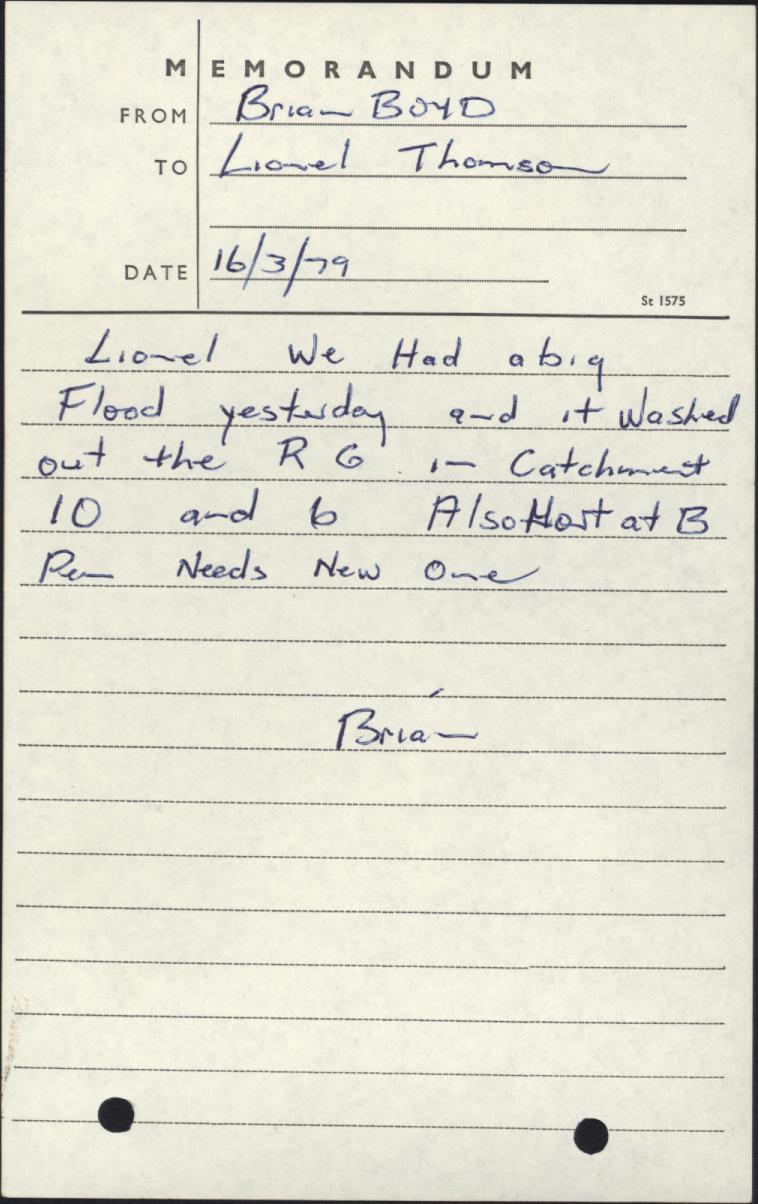 MEMORANDUM
FROM Brian BOYD
TO Lionel Thomson
DATE 16/3/79
St 1575
Lionel We Had a big
Flood yesterday and it Washed
out the R G in Catchment
10 and 6 Also at B
Pen Needs New One
Brian